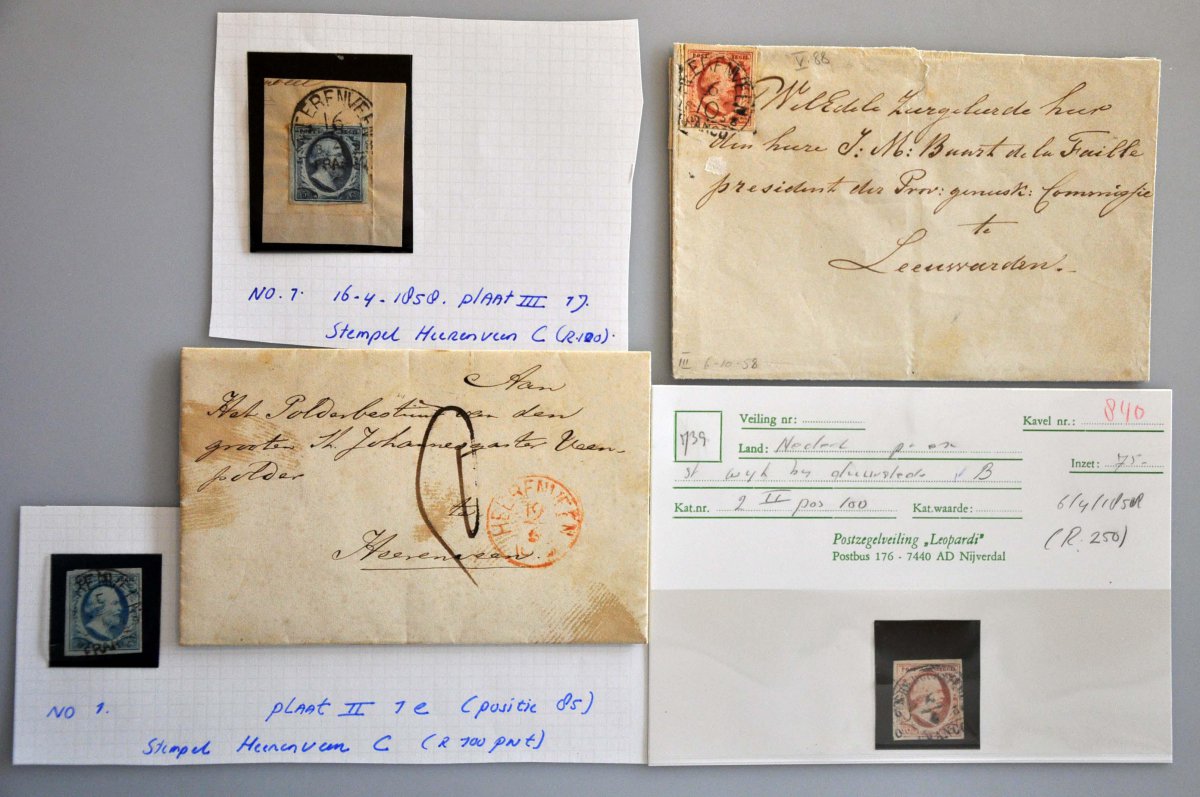 HEERENVEEN
16
FRANCO
NO. 1. 16-4-1858. PLAAT III 1J.
Stempel Heerenveen C (R.100).
V 88
POST ZEGEL
HEERENVEEN
6
10
FRANCO
WelEdele Zeergeleerde heer
den heere J: M: Baart de la Faille
president der Prov: geneesk: Commissie
te
Leeuwarden.
III 6-10-58
Aan
Het Polderbestuur van den
grooten St Johannesgaster Veen-
polder
te
Heerenveen.
HEERENVEEN
HEERENVEEN
FRANCO
NO 1. PLAAT II 1e (positie 85)
Stempel Heerenveen C (R 100 PNT)
1739
Veiling nr:
Kavel nr.: 840
Land: Nederl
st wyk by duurstede B
Inzet: 75.-
Kat.nr. 2 II pos 100
Kat.waarde:
6/4/1858
(R. 250)
Postzegelveiling „Leopardi"
Postbus 176 - 7440 AD Nijverdal